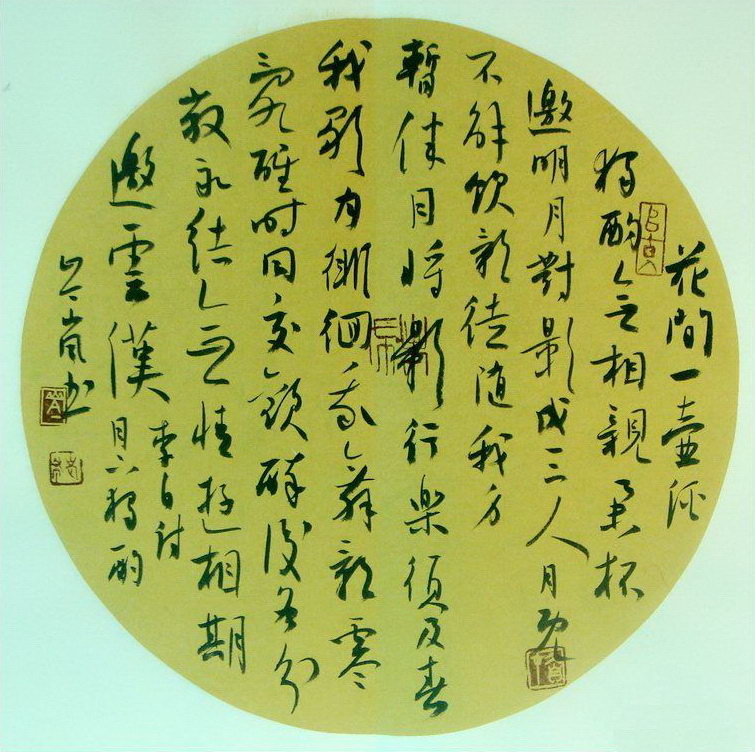 花間一壺酒
獨酌無相親舉杯
邀明月對影成三人月既
不解飲影徒随我身
暫伴月將影行楽須及春
我歌月徘徊我舞影零
亂醒時同交歡醉後各分
散永結無情遊相期
邈雲漢
李白詩
月下獨酌
岚书